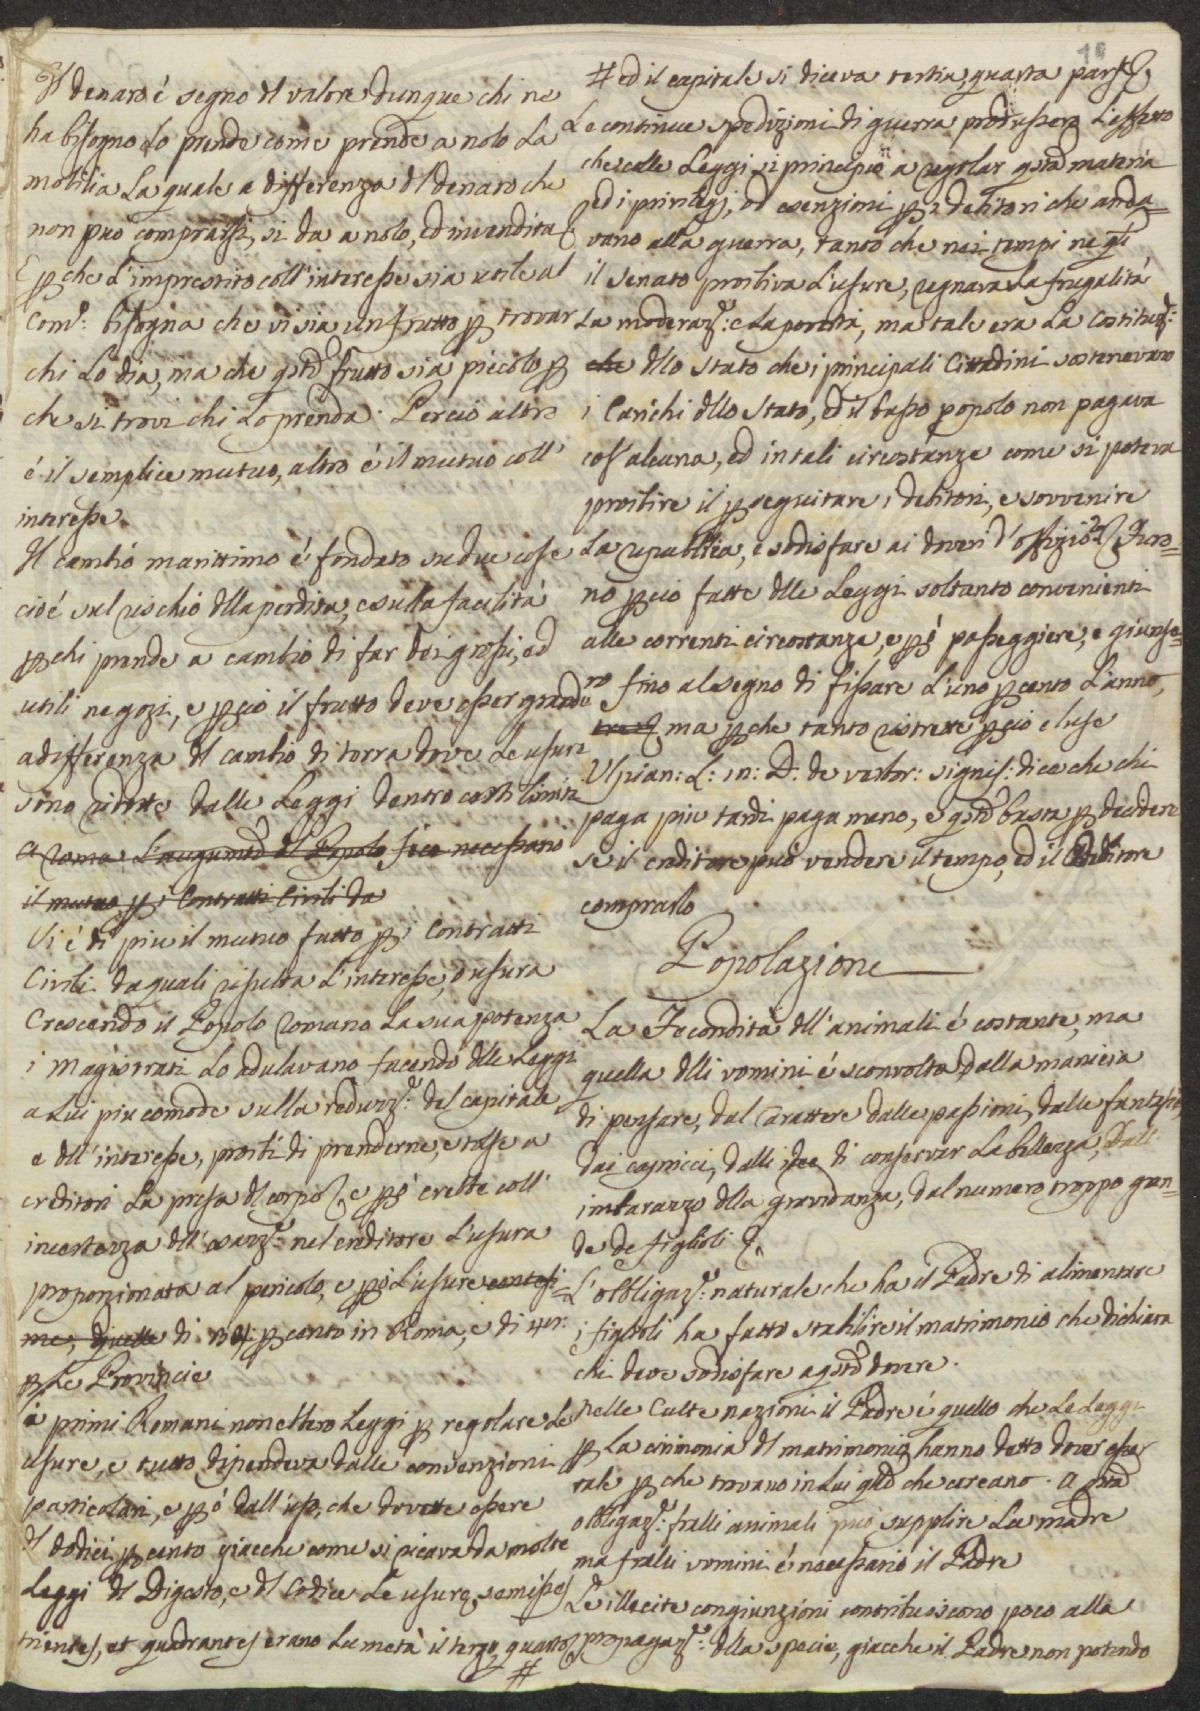 Il denaro é segno dl valore dunque chi ne
ha bisogno lo prende come prende a nolo la
mobilia la quale a differenza dl denaro che
non puo comprarsi, si da a nolo, ed in vendita
pche l'imprestito coll'interesse sia utile al
Com: bisogna che vi sia un frutto p trovar
chi lo dia, ma che qsto frutto sia piccolo p
che si trovi chi lo prenda. Perciò altro
é il semplice mutuo, altro é il mutuo coll'
interesse.
Il cambio marittimo é fondato su due cose
cioé sul rischio dlla perdita, e sulla facilità
p chi prende a cambio di far dei grossi, ed
utili negozi, e pciò il frutto deve esser grande
a differenza dl cambio di terra dove le usure
sono ridotte dalle Leggi dentro certi limiti
a Roma l'augumto dl Popolo fece necessario
il mutuo p i Contratti Civili da
Vi é di piu il mutuo fatto p i Contratti
Civili da quali risulta l'interesse, o usura
Crescendo il Popolo Romano la sua potenza
i Magistrati lo adulavano facendo dlle Leggi
a lui piu comode sulla reduz: del capitale
e dll'interesse, proiti di prenderne, e tolse a
creditori la presa dl corpo, e pò crebbe coll'
incertezza dll'esaz: nel creditore l'usura
proporzionata al pericolo, e pò l'usure centesi=
me, quelle di p cento in Roma, e di
p le Provincie
i primi Romani non ebbero Leggi p regolare le
usure, e tutto dipendeva dalle convenzioni
particolari, e pò dall'uso, che dovette essere
Il dodici p cento giacche come si ricava da molte
Leggi dl Digesto, e dl Codice le usure semisses
trientes, et quadrantes erano la metà il terzo, quarto
#
# ed il capitale si diceva tertia, quarta pars
Le continue spedizioni di guerra produssero l'effetto
che colle Leggi si principiò a regolar qsta materia
ed i privilegj, ed esenzioni p i debitori che anda=
vano alla guerra, tanto che nei tempi ne qli
il senato proibiva l'usure, regnava la frugalità
la moderaz: e la povertà, ma tale era la Costituz:
che dllo stato che i principali Cittadini sostenevano
i Carichi dllo stato, ed il basso popolo non pagava
cos'alcuna, ed in tali circostanze come si poteva
proibire il pseguitare i debitori, e sovvenire
la republica, e sodisfare ai doveri d'offizio? Furo=
no pciò fatte dlle Leggi soltanto convenienti
alle correnti circostanze, e pò passeggiere, e giunse=
ro fino al segno di fissare l'uno p cento l'anno,
ma pche tanto ristrette pciò eluse
Ulpian: L: 10: D: de verbor: signif: dice che chi
paga piu tardi paga meno, e qsto basta p decidere
se il creditore può vendere il tempo, ed il Debitore
comprarlo
Popolazione
La Fecondità dll'animali é costante, ma
quella dlli uomini é sconvolta dalla maniera
di pensare, dal Carattere dalle passioni, dalle fantasie
dai capricci, dalle idee di conservar la bellezza, dall'
imbarazzo dlla gravidanza, dal numero troppo gran=
de de figlioli &c.
L'obbligaz: naturale che ha il Padre di alimentare
i figlioli ha fatto stabilire il matrimonio che dichiara
chi deve sodisfare a qsto dovere.
Nelle Culte nazioni il Padre é quello che le Leggi
p la cirimonia dl matrimonio hanno detto dover esser
tale pche trovano in lui qllo che cercano. A qsta
obbligaz: fralli animali può supplire la madre
ma fralli uomini é necessario il Padre
Le illecite congiunzioni contribuiscono poco alla
propagaz: dlla specie, giacche il Padre non potendo